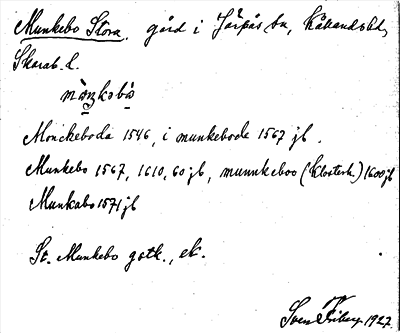 Munkebo Stora, gård i Järpås sn, Kållands hd,
Skarab. l.
Monckeboda 1546, i munkebode 1567 jb.
Munkebo 1567, 1610, 60 jb, munnkeboo (Klosterh.) 1600 jb
Munkabo 1571 jb
St. Munkebo gatk., ek.
Sven Friberg 1927